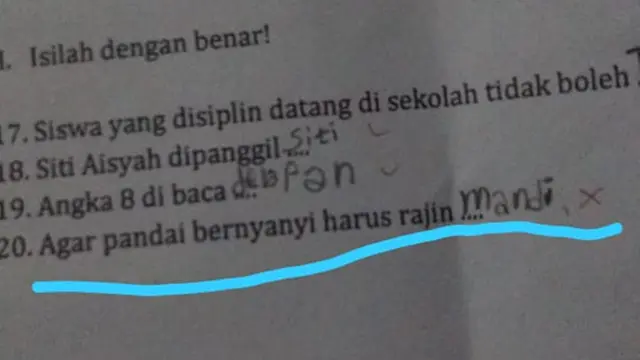 I. Isilah dengan benar!
17. Siswa yang disiplin datang di sekolah tidak boleh
18. Siti Aisyah dipanggil....Siti
19. Angka 8 di baca ... delapan
20. Agar pandai bernyanyi harus rajin ....mandi